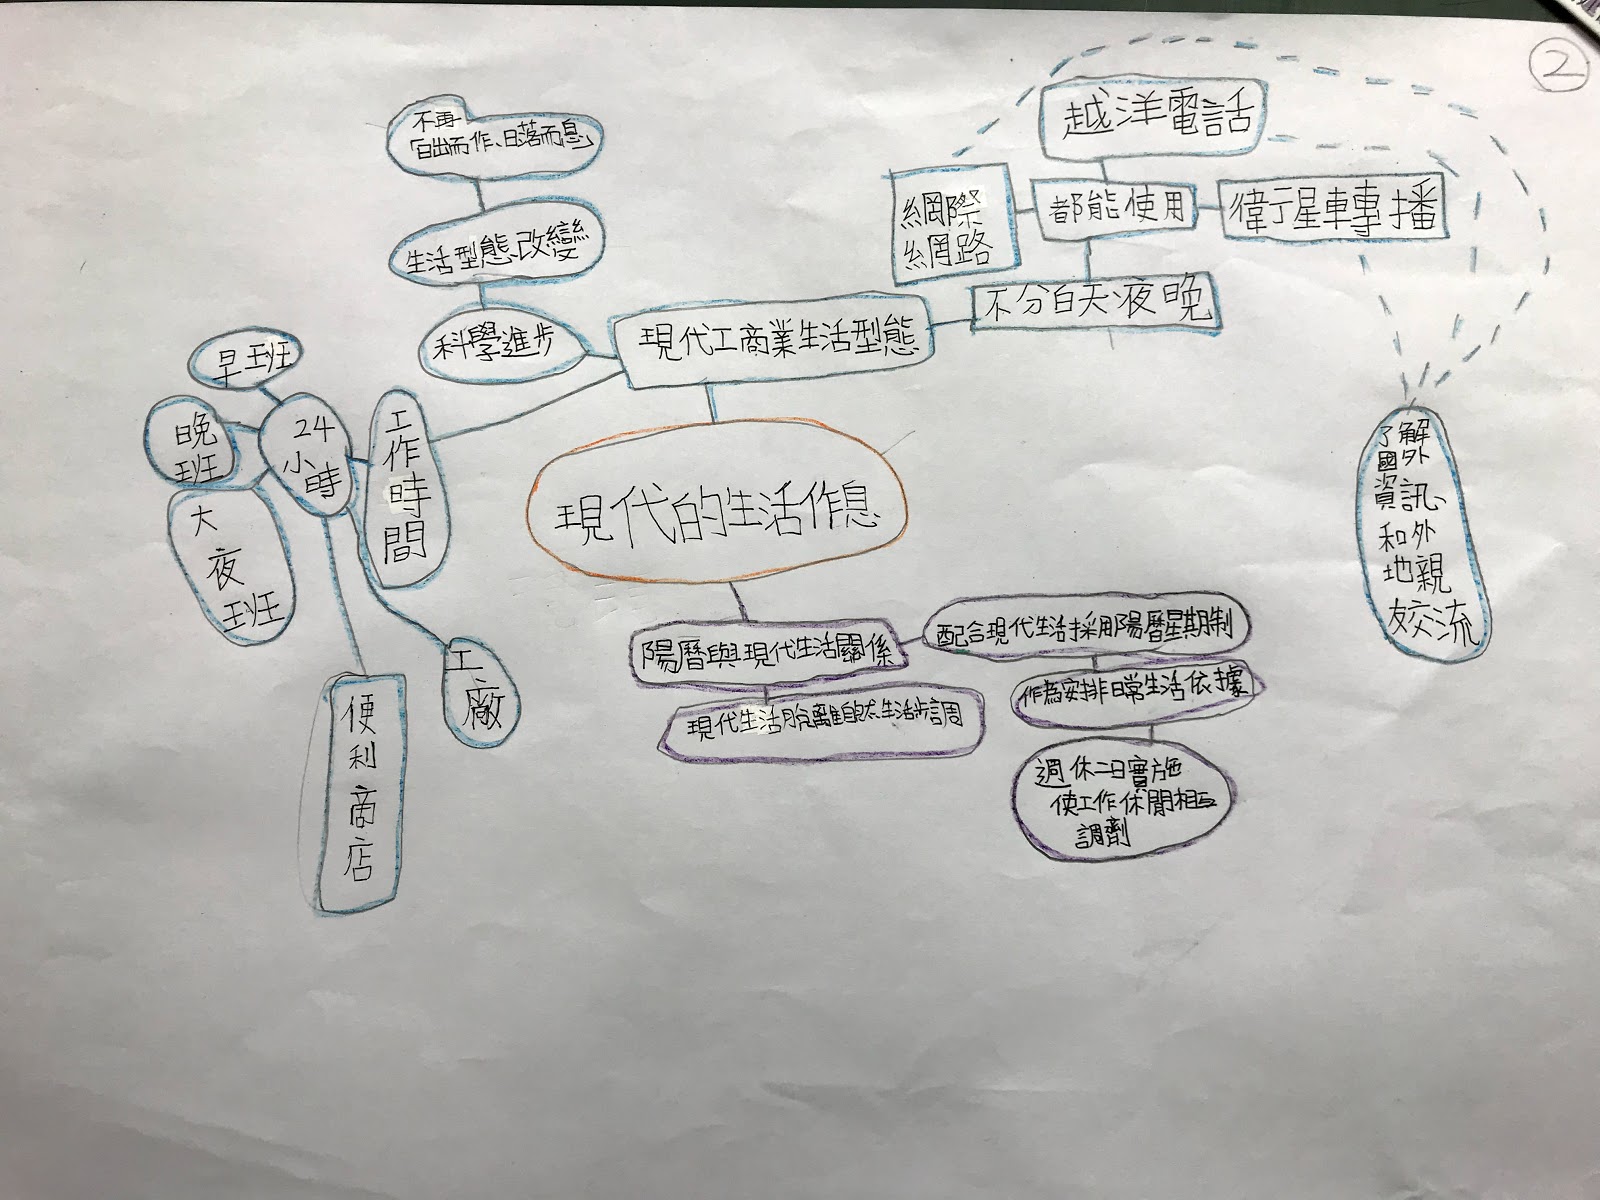 2
不再
「日出而作、日落而息」
生活型態改變
科學進步
現代工商業生活型態
越洋電話
網際
網路
都能使用
衛星轉播
不分白天、夜晚
了解
國外
資訊、
和外
地親
友交流
早班
晚
班
大
夜
班
24
小時
工作時間
工廠
便利商店
現代的生活作息
陽曆與現代生活關係
現代生活脫離自然生活步調
配合現代生活採用陽曆星期制
作為安排日常生活依據
週休二日實施
使工作休閒相互
調劑